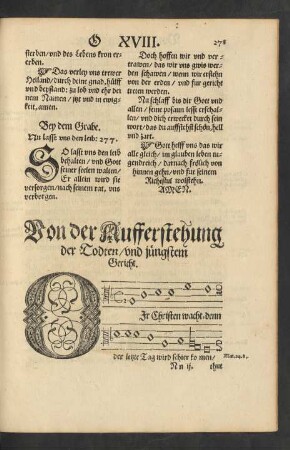 G XVIII. 278
sterben / und des lebens kron er-
erben.
Das verley uns trewer
Heiland / durch deine gnad, hülff
und beystand: zu lob und ehr dei-
nem Namen / itzt und in ewig-
keit, amen.
Bey dem Grabe.
Nu lasst uns den leib: 277.
SO lasst uns den leib
behalten / und Gott
seiner seelen walten /
Er allein wird sie
versorgen / nach seinem rat, uns
verborgen.
Doch hoffen wir und ver-
trawen / das wir uns gwis wer-
den schawen / wenn wir erstehn
von der erden / und für gericht
treten werden.
Nu schlaff bis dir Gott und
allen / seine posaun lesst erschal-
len / und dich erweckt durch sein
wort / das du aufferstehst schön, hell
und zart.
Gott helff uns das wir
alle gleich / im glauben leben
gendreich / darnach seelich von
hinnen gehn / und für seinem
AMEN.
Von der Aufferstehung
der Todten / vnd jüngstem
Gericht.
Ir Christen wacht, denn
der letzte Tag wird schier kommen /
Mat. 24.
N n ij. thut